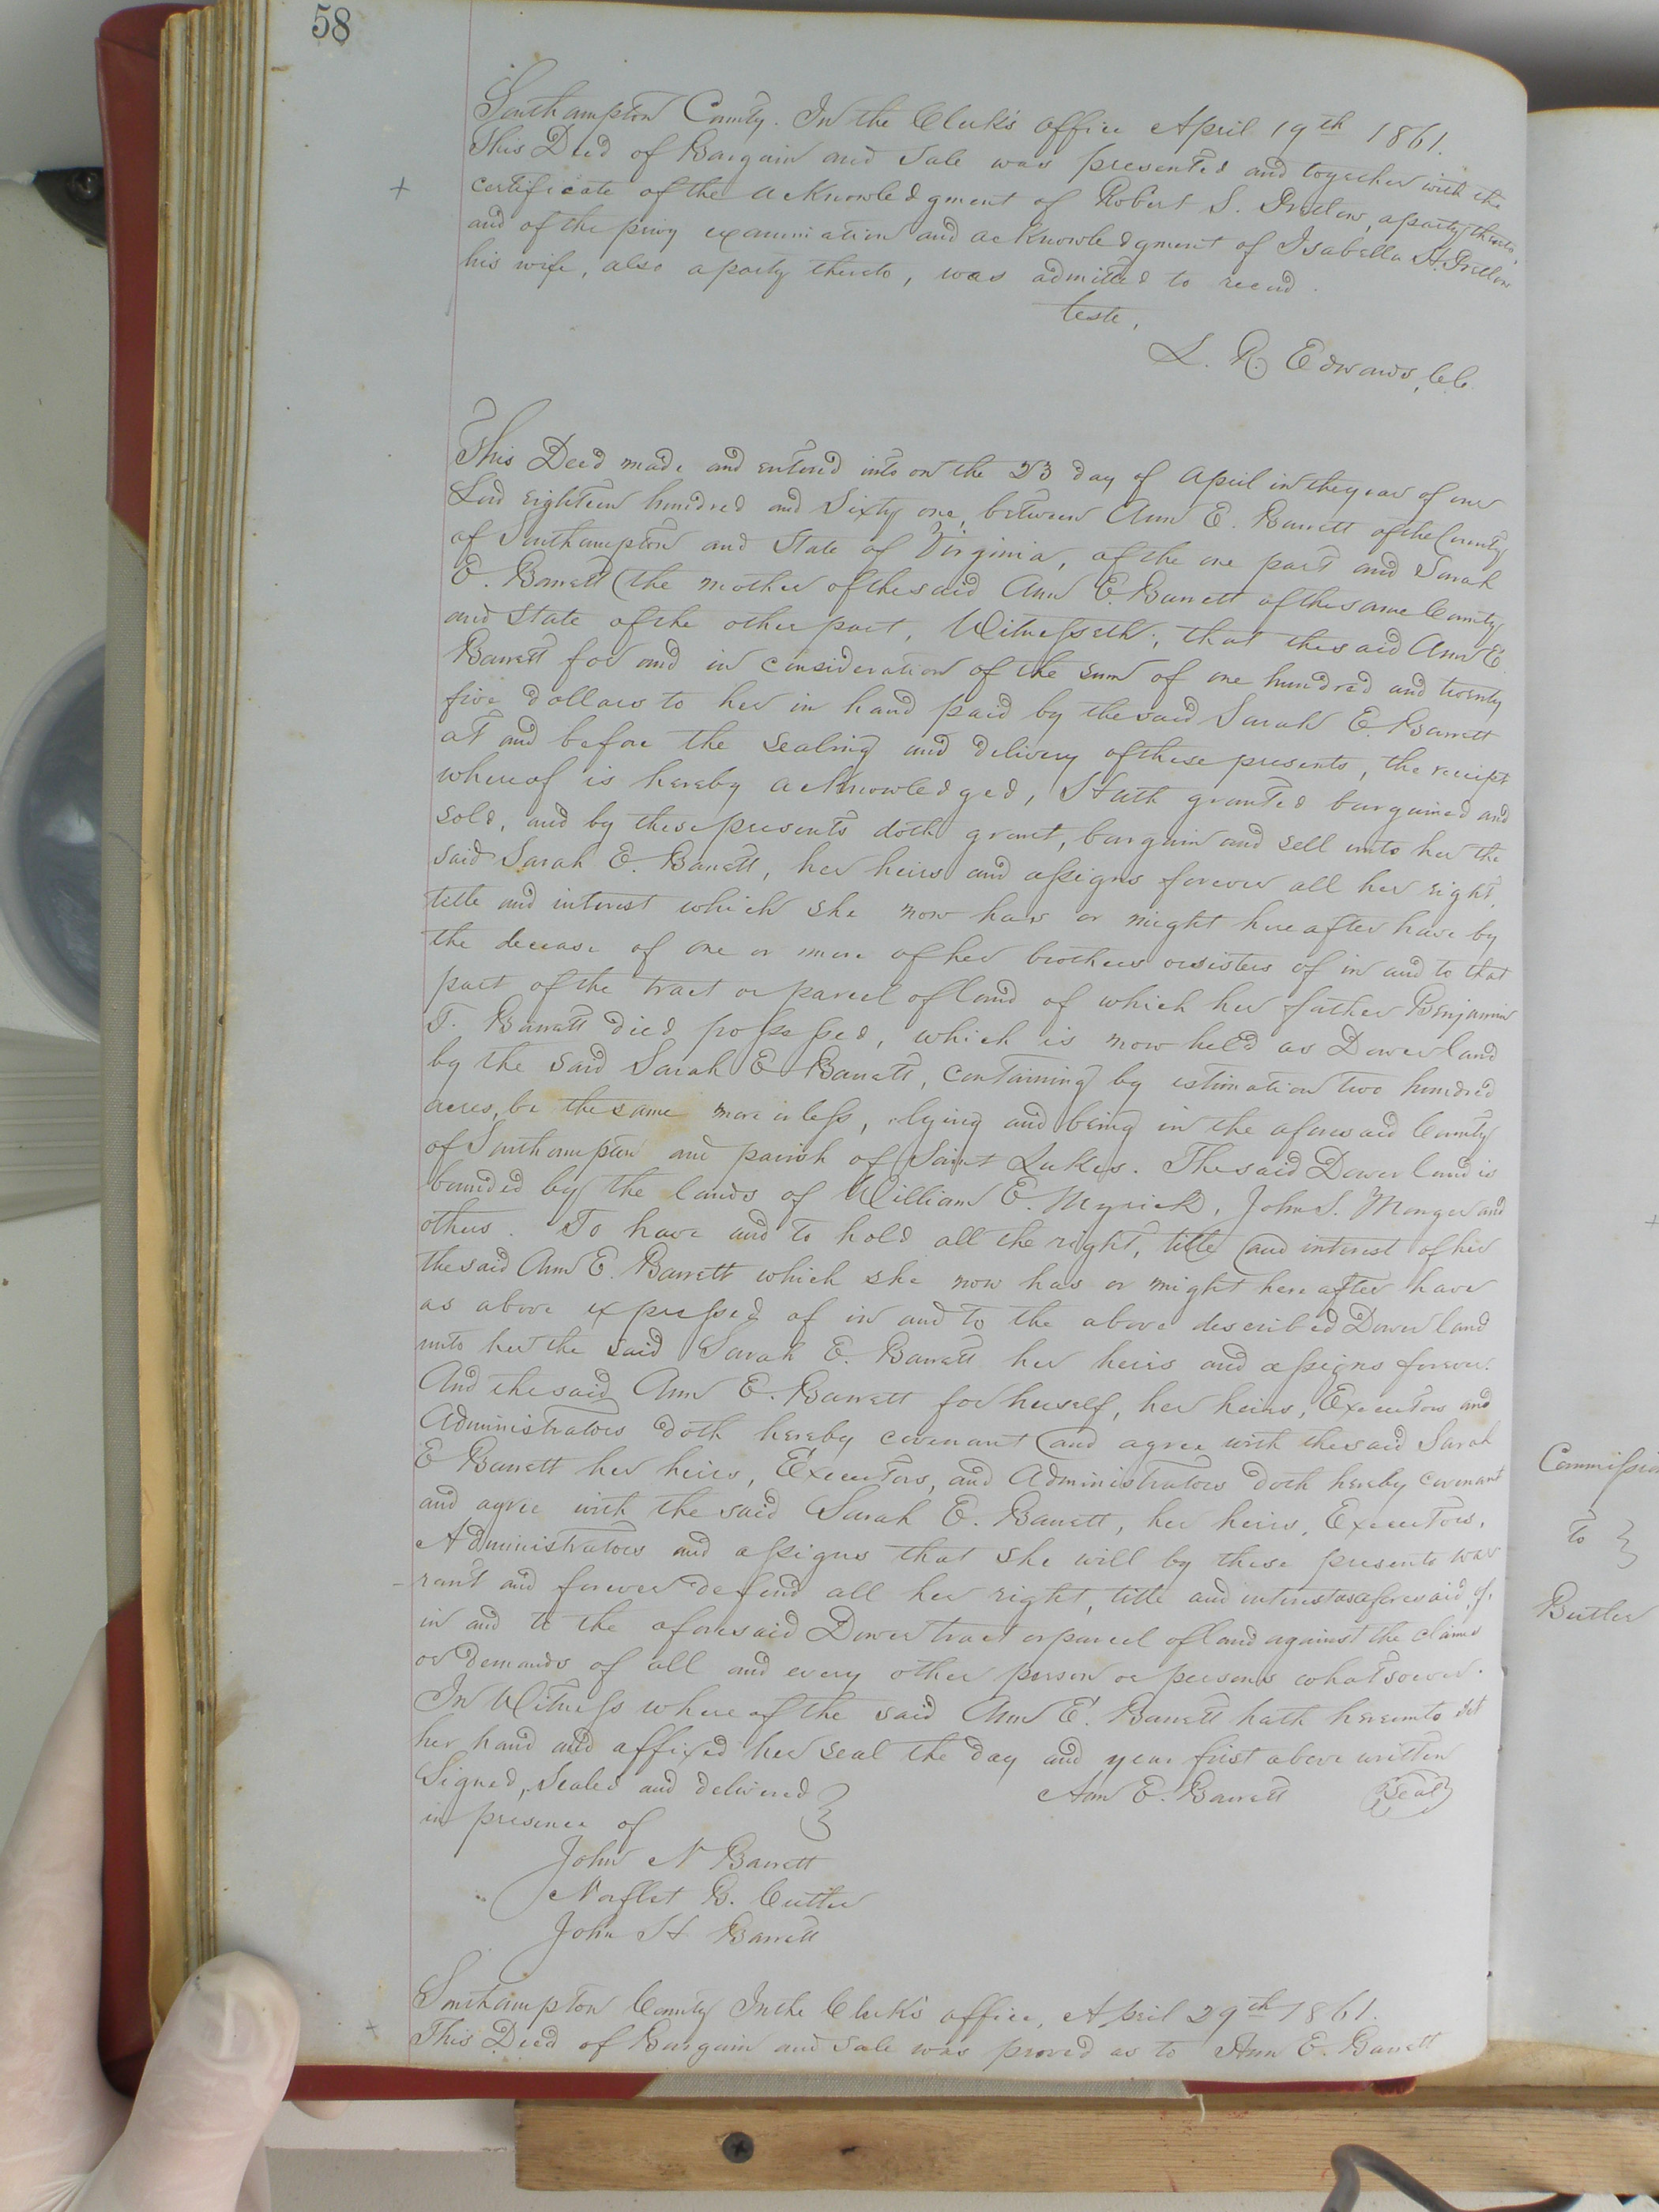 58
Southampton County. In the Clerk's office April 19th 1861.
This Deed of Bargain and Sale was presented and together with the
certificate of the acknowledgment of Robert S. Pretlow, a party thereto,
and of the privy examination and acknowledgment of Isabella H. Pretlow
his wife, also a party thereto, was admitted to record.
Teste,
L. R. Edwards, C.C.
This Deed made and entered into on the 23 day of April in the year of our
Lord eighteen hundred and Sixty one, between Ann E. Barrett of the County
of Southampton and State of Virginia, of the one part and Sarah
E. Barrett (the mother of the said Ann E. Barrett of the same County
and State of the other part, Witnesseth; that the said Ann E.
Barrett for and in consideration of the sum of one hundred and twenty
five dollars to her in hand paid by the said Sarah E. Barrett
at and before the sealing and delivery of these presents, the receipt
whereof is hereby acknowledged, Hath granted bargained and
sold, and by these presents doth grant, bargain and sell unto her the
said Sarah E. Barrett, her heirs and assigns forever all her right,
title and interest which she now has or might hereafter have by
the decease of one or more of her brothers or sisters of in and to that
part of the tract or parcel of land of which her father Benjamin
T. Barrett died possessed, which is now held as Dower land
by the said Sarah E Barrett, containing by estimation two hundred
acres, be the same more or less, lying and being in the aforesaid County
of Southampton and parish of Saint Lukes. The said Dower land is
bounded by the lands of William E. Myrick, John S. Monger and
others. To have and to hold all the right, title and interest of her
the said Ann E. Barrett which she now has or might here after have
as above expressed of in and to the above described Dower land
unto her the said Sarah E. Barrett her heirs and assigns forever.
And the said Ann E. Barrett for herself, her heirs, Executors and
Administrators doth hereby covenant and agree with the said Sarah
E Barrett her heirs, Executors, and Administrators doth hereby covenant
and agree with the said Sarah E. Barrett, her heirs, Executors,
Administrators and assigns that she will by these presents war
rant and forever defend all her right, title and interest as aforesaid, of,
in and to the aforesaid Dower tract or parcel of land against the claims
or demands of all and every other person or persons whatsoever.
In Witness whereof the said Ann E. Barrett hath hereunto set
her hand and affixed her seal the day and year first above written
Signed, Sealed and delivered } Ann E. Barrett Seal
in presence of
John N Barrett
Norflet B. Cutler
John H Barrett
Southampton County In the Clerk's office, April 29th 1861.
This Deed of Bargain and Sale was proved as to Ann E. Barrett
to }
Butler